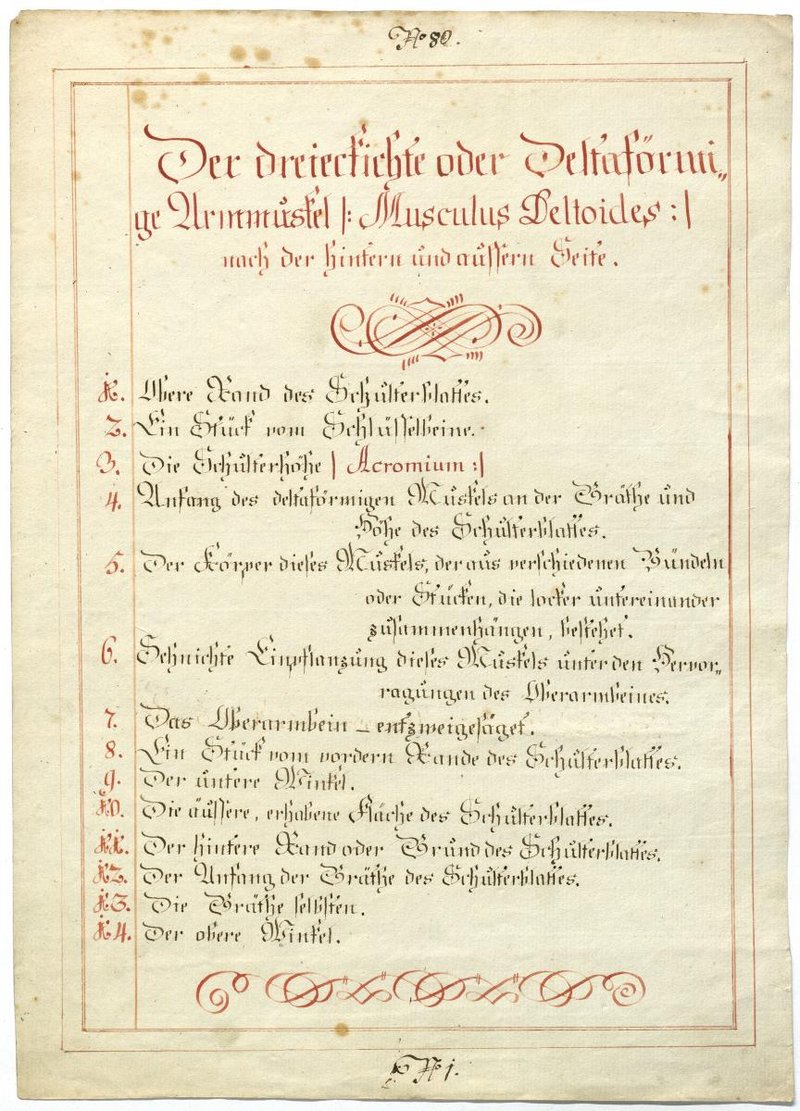 No 80.
Der dreieckichte oder Deltaförmi„
ge Armmuskel |: Musculus Deltoides :|
nach der hintern und aüssern Seite.
1. Obere Rand des Schulterblattes.
2. Ein Stück vom Schlüsselbeine.
3. Die Schulterhöhe | Acromium :|
4. Anfang des deltaförmigen Muskels an der Gräthe und
Höhe des Schulterblattes.
5. Der Körper dieses Muskels, der aus verschiedenen Bündeln
oder Stücken, die locker untereinander
zusammenhängen, bestehet.
6. Sehnichte Einpflanzung dieses Muskels unter den Hervor„
ragungen des Oberarmbeines.
7. Das Oberarmbein – entzweigesäget.
8. Ein Stück vom vordern Rande des Schulterblattes.
9. Der untere Winkel.
10. Die äussere, erhabene Fläche des Schulterblattes.
11. Der hintere Rand oder Grund des Schulterblattes.
12. Der Anfang der Gräthe des Schulterblattes.
13. Die Gräthe selbsten.
14. Der obere Winkel.
N 1.